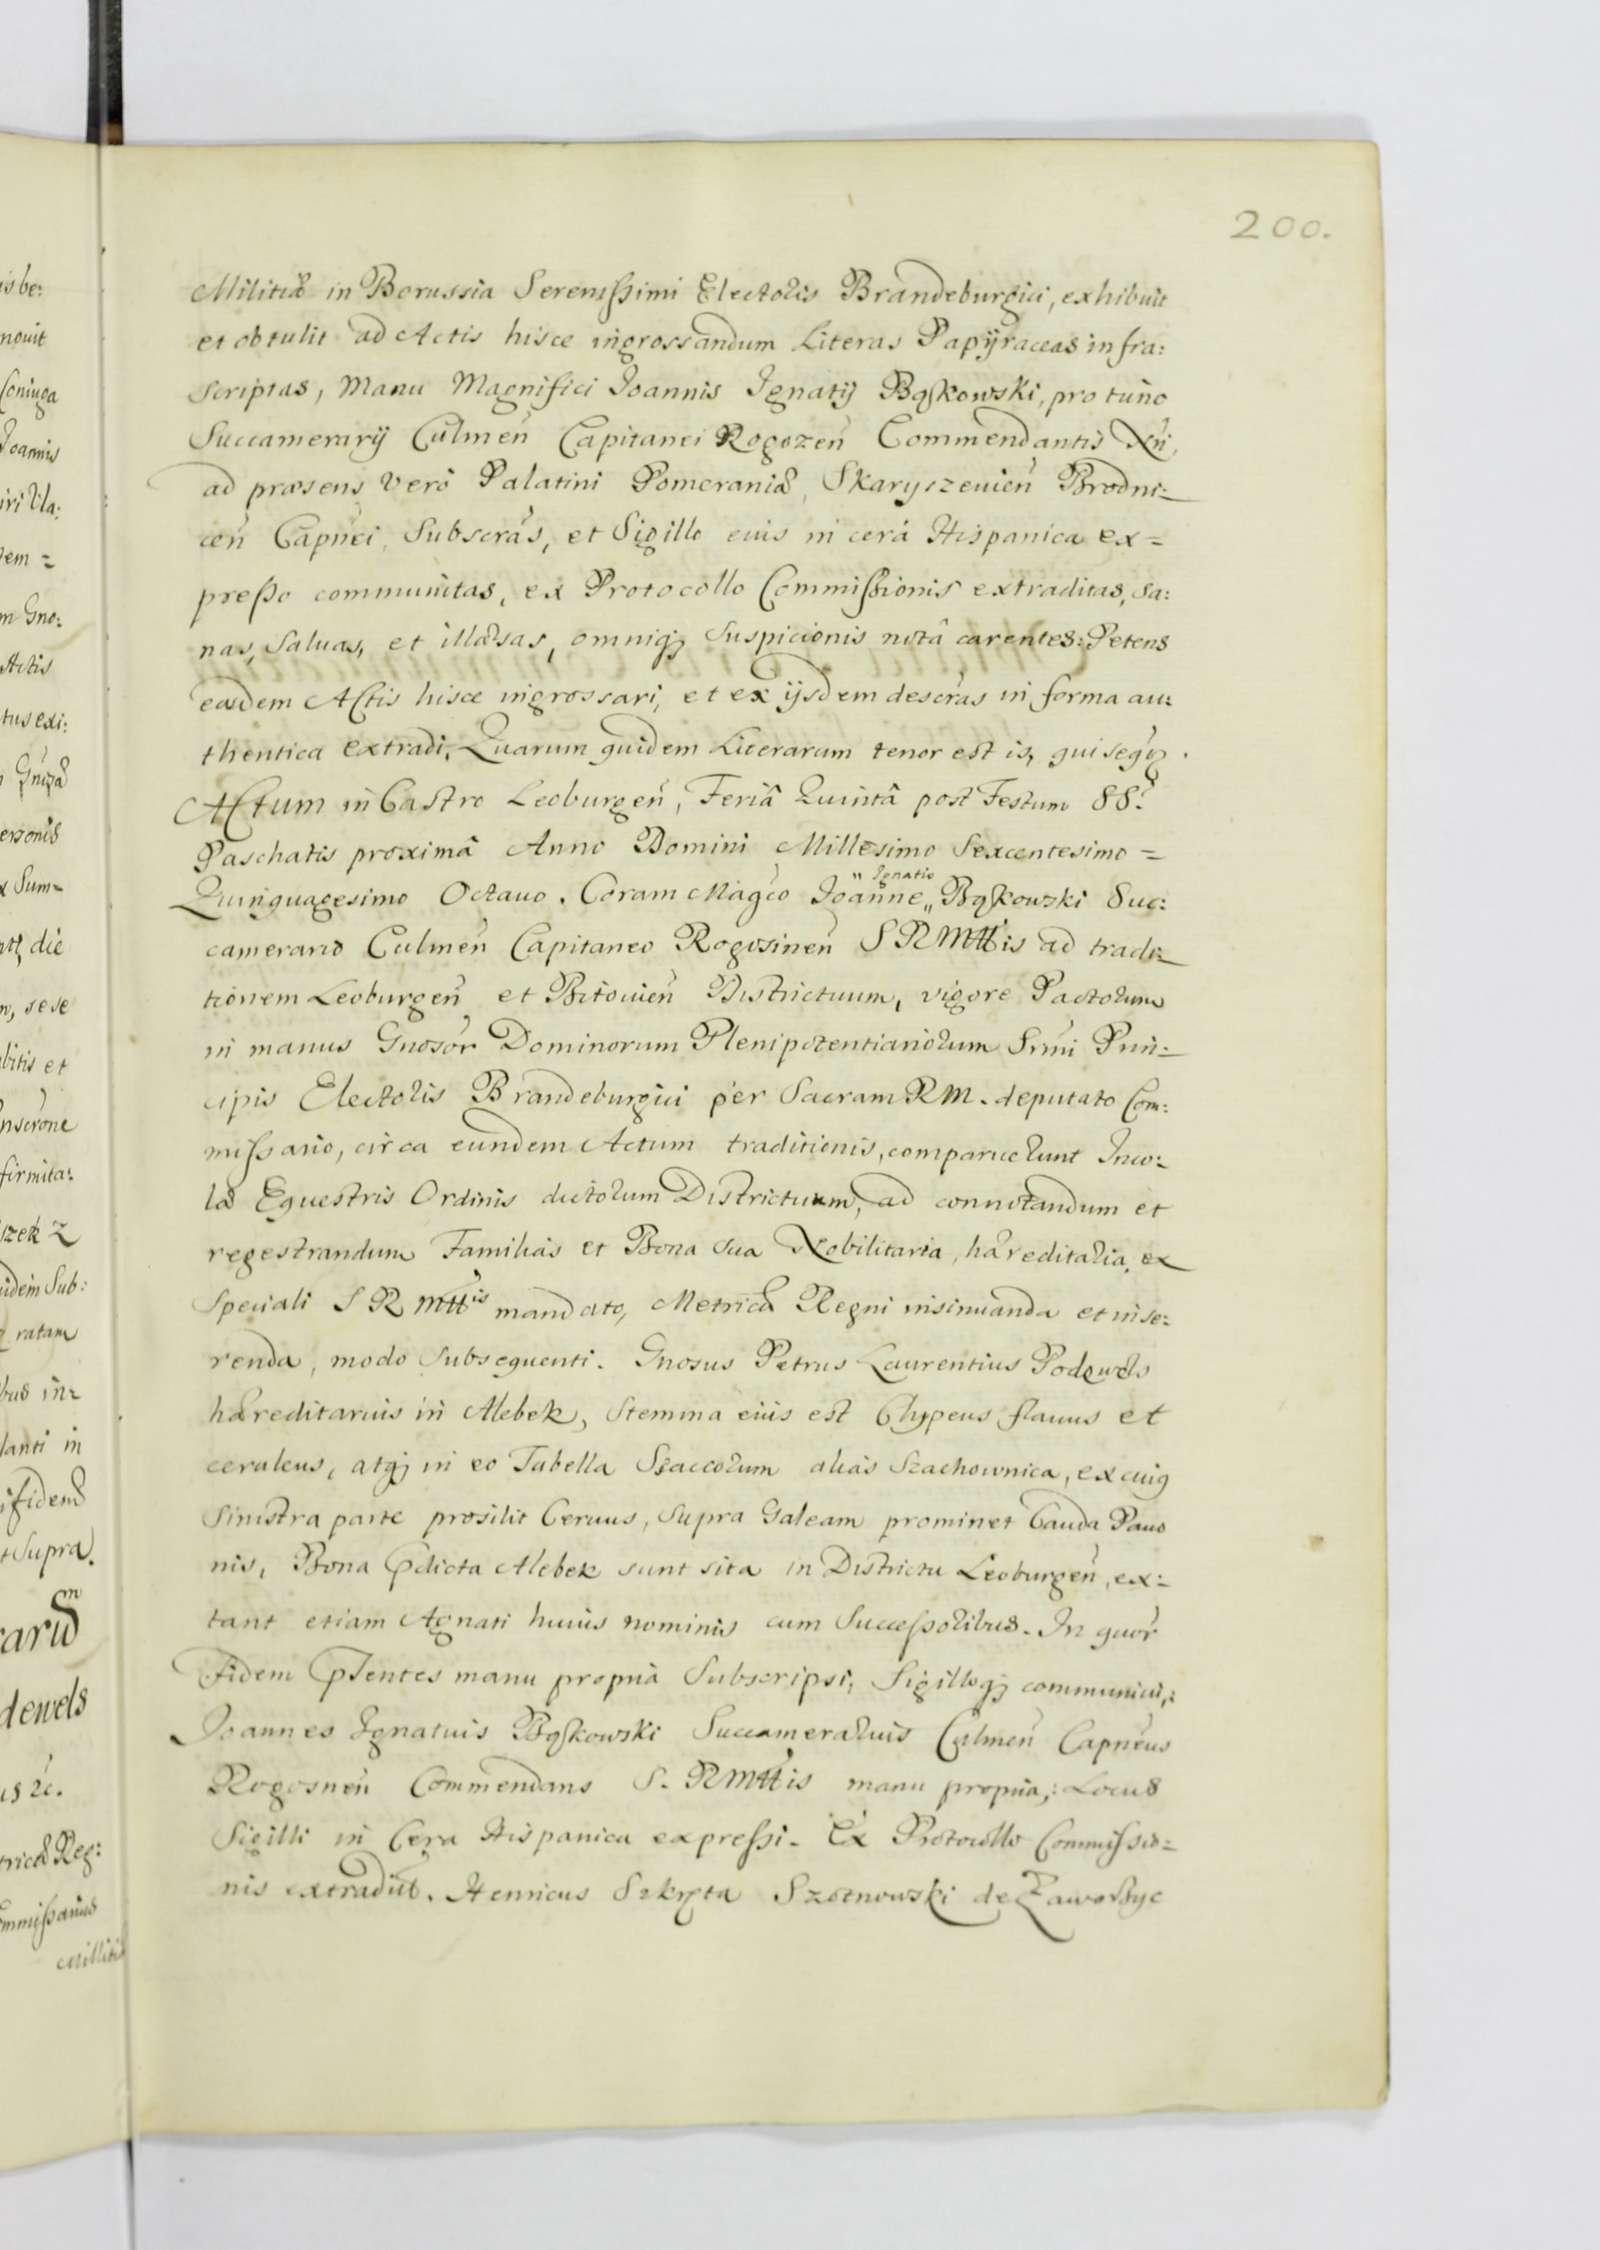 200.
Militiæ in Borussia Serenissimi Electoris Brandeburgici, exhibuit
et obtulit ad Actis hisce ingrossandum Literas Papÿraceas infra:
scriptas, Manu Magnifici Joannis Ignatij Bąkowski, pro tunc
Succamerarij Culmen̄ Capitanei Rogozen̄ Commendantis
ad præsens verò Palatini Pomeraniæ, Skaryszeuien̄ Brodni=
cen̄ Capn̄ei, Subscr̄as, et Sigillo eius in cerâ Hispanica ex=
presso communitas, ex Protocollo Commissionis extraditas, sa:
nas, Saluas, et illæsas, omniq; suspicionis notâ carentes: Petens
easdem Actis hisce ingrossari, et ex ijsdem descr̄as in forma au:
thentica extradi. Quarum quidem Literarum tenor est is, qui seq̄r
Actum in Castro Leoburgen̄, Feriâ Quintâ post Festum SS:
Paschatis proximâ Anno Domini Millesimo Sexcentesimo =
Quinquagesimo Octauo. Coram Maḡco Joanne „ Ignatio „ Bąkowski Suc:
camerario Culmen̄ Capitaneo Rogosinen̄ S R Mttis ad tradi=
tionem Leoburgen̄ et Bitouien̄ Districtuum, vigore Pactorum
in manus Gnosor̄ Dominorum Plenipotentiariorum Srmi Prin=
cipis Electoris Brandeburgici per Sacram R M. deputato Com:
missario, circa eundem Actum traditionis, comparuerunt Inco:
læ Equestris Ordinis dictorum Districtuum, ad connotandum et
regestrandum Familias et Bona sua Nobilitaria, hæreditaria, ex
Speciali S R Mttis mandato, Metricæ Regni insinuanda et inse:
renda, modo subsequenti. Gnosus Petrus Laurentius Podewels
hæreditarius in Alebek, Stemma eius est Clypeus flauus et
ceruleus, atq; in eo Tabella Scaccorum aliàs Szachownica, ex cuiq
sinistra parte prosilit Ceruus, Supra Galeam prominet Cauda Pauo
nis, Bona p̄dicta Alebek sunt sita in Districtu Leoburgen̄, ex=
tant etiam Agnati huius nominis cum Successoribus. In quor̄
Fidem p̄sentes manu propria Subscripsi, Sigilloq; communiui,:
Joannes Ignatius Bąkowski Succamerarius Culmen̄ Capn̄eus
Rogosnen̄ Commendans S. R Mttis manu propria,: Locus
Sigilli in Cera Hispanica expressi. Ex Protocollo Commissio=
nis extradit. Henricus Szkypta Szotnowski de Zawoszyc